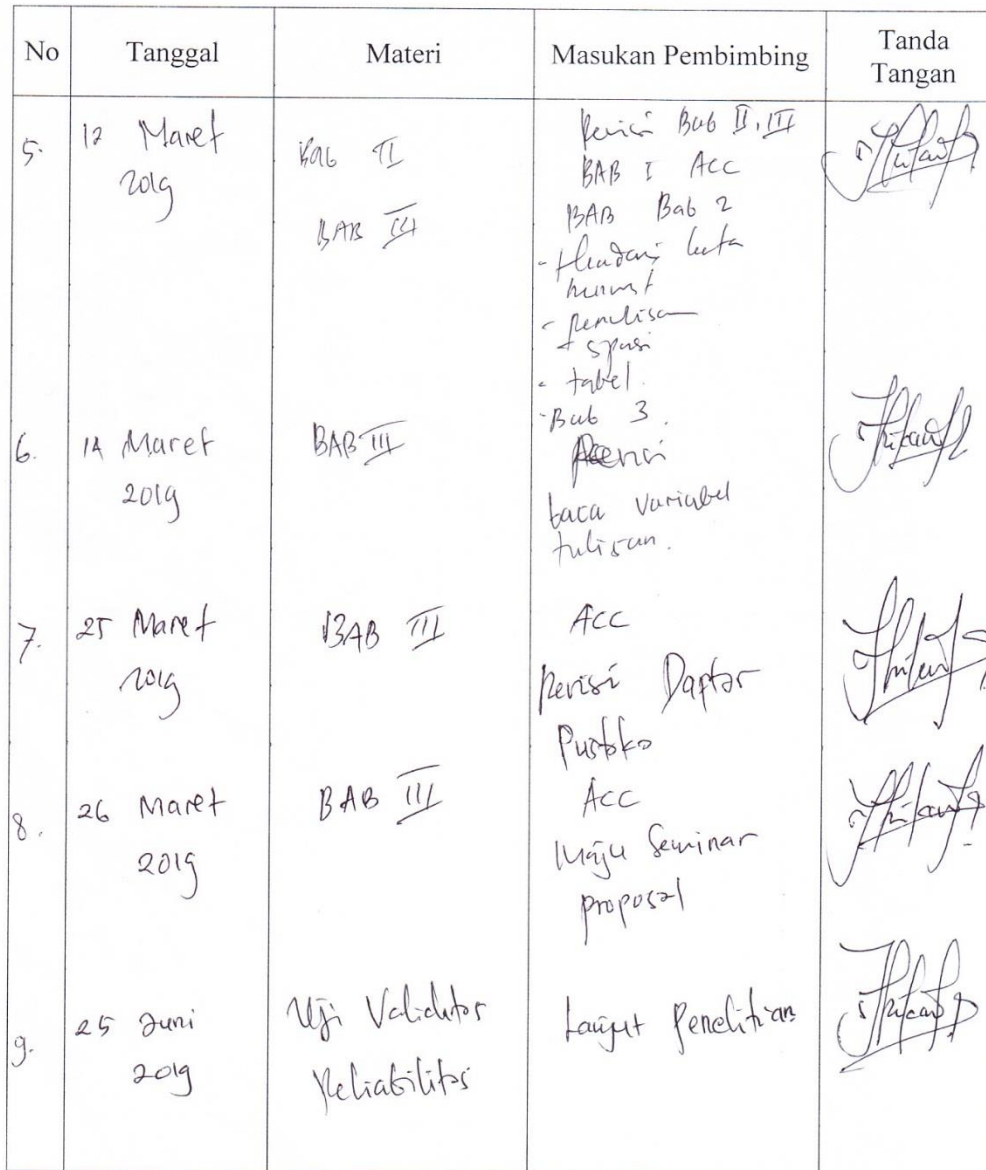 No Tanggal Materi Masukan Pembimbing Tanda Tangan
5. 12 Maret 2019
Bab II
BAB III
Revisi Bab II, III
BAB I ACC
BAB Bab 2
-
- penulisan
+ spasi
- tabel.
- Bab 3.
6. 14 Maret 2019
BAB III
Revisi
baca variabel
tulisan.
7. 25 Maret 2019
BAB III
ACC
Revisi Daptar
Pustaka
8. 26 Maret 2019
BAB III
ACC
Maju Seminar
proposal
9. 25 Juni 2019
Uji Validitas
Reliabilitas
Lanjut Penelitian